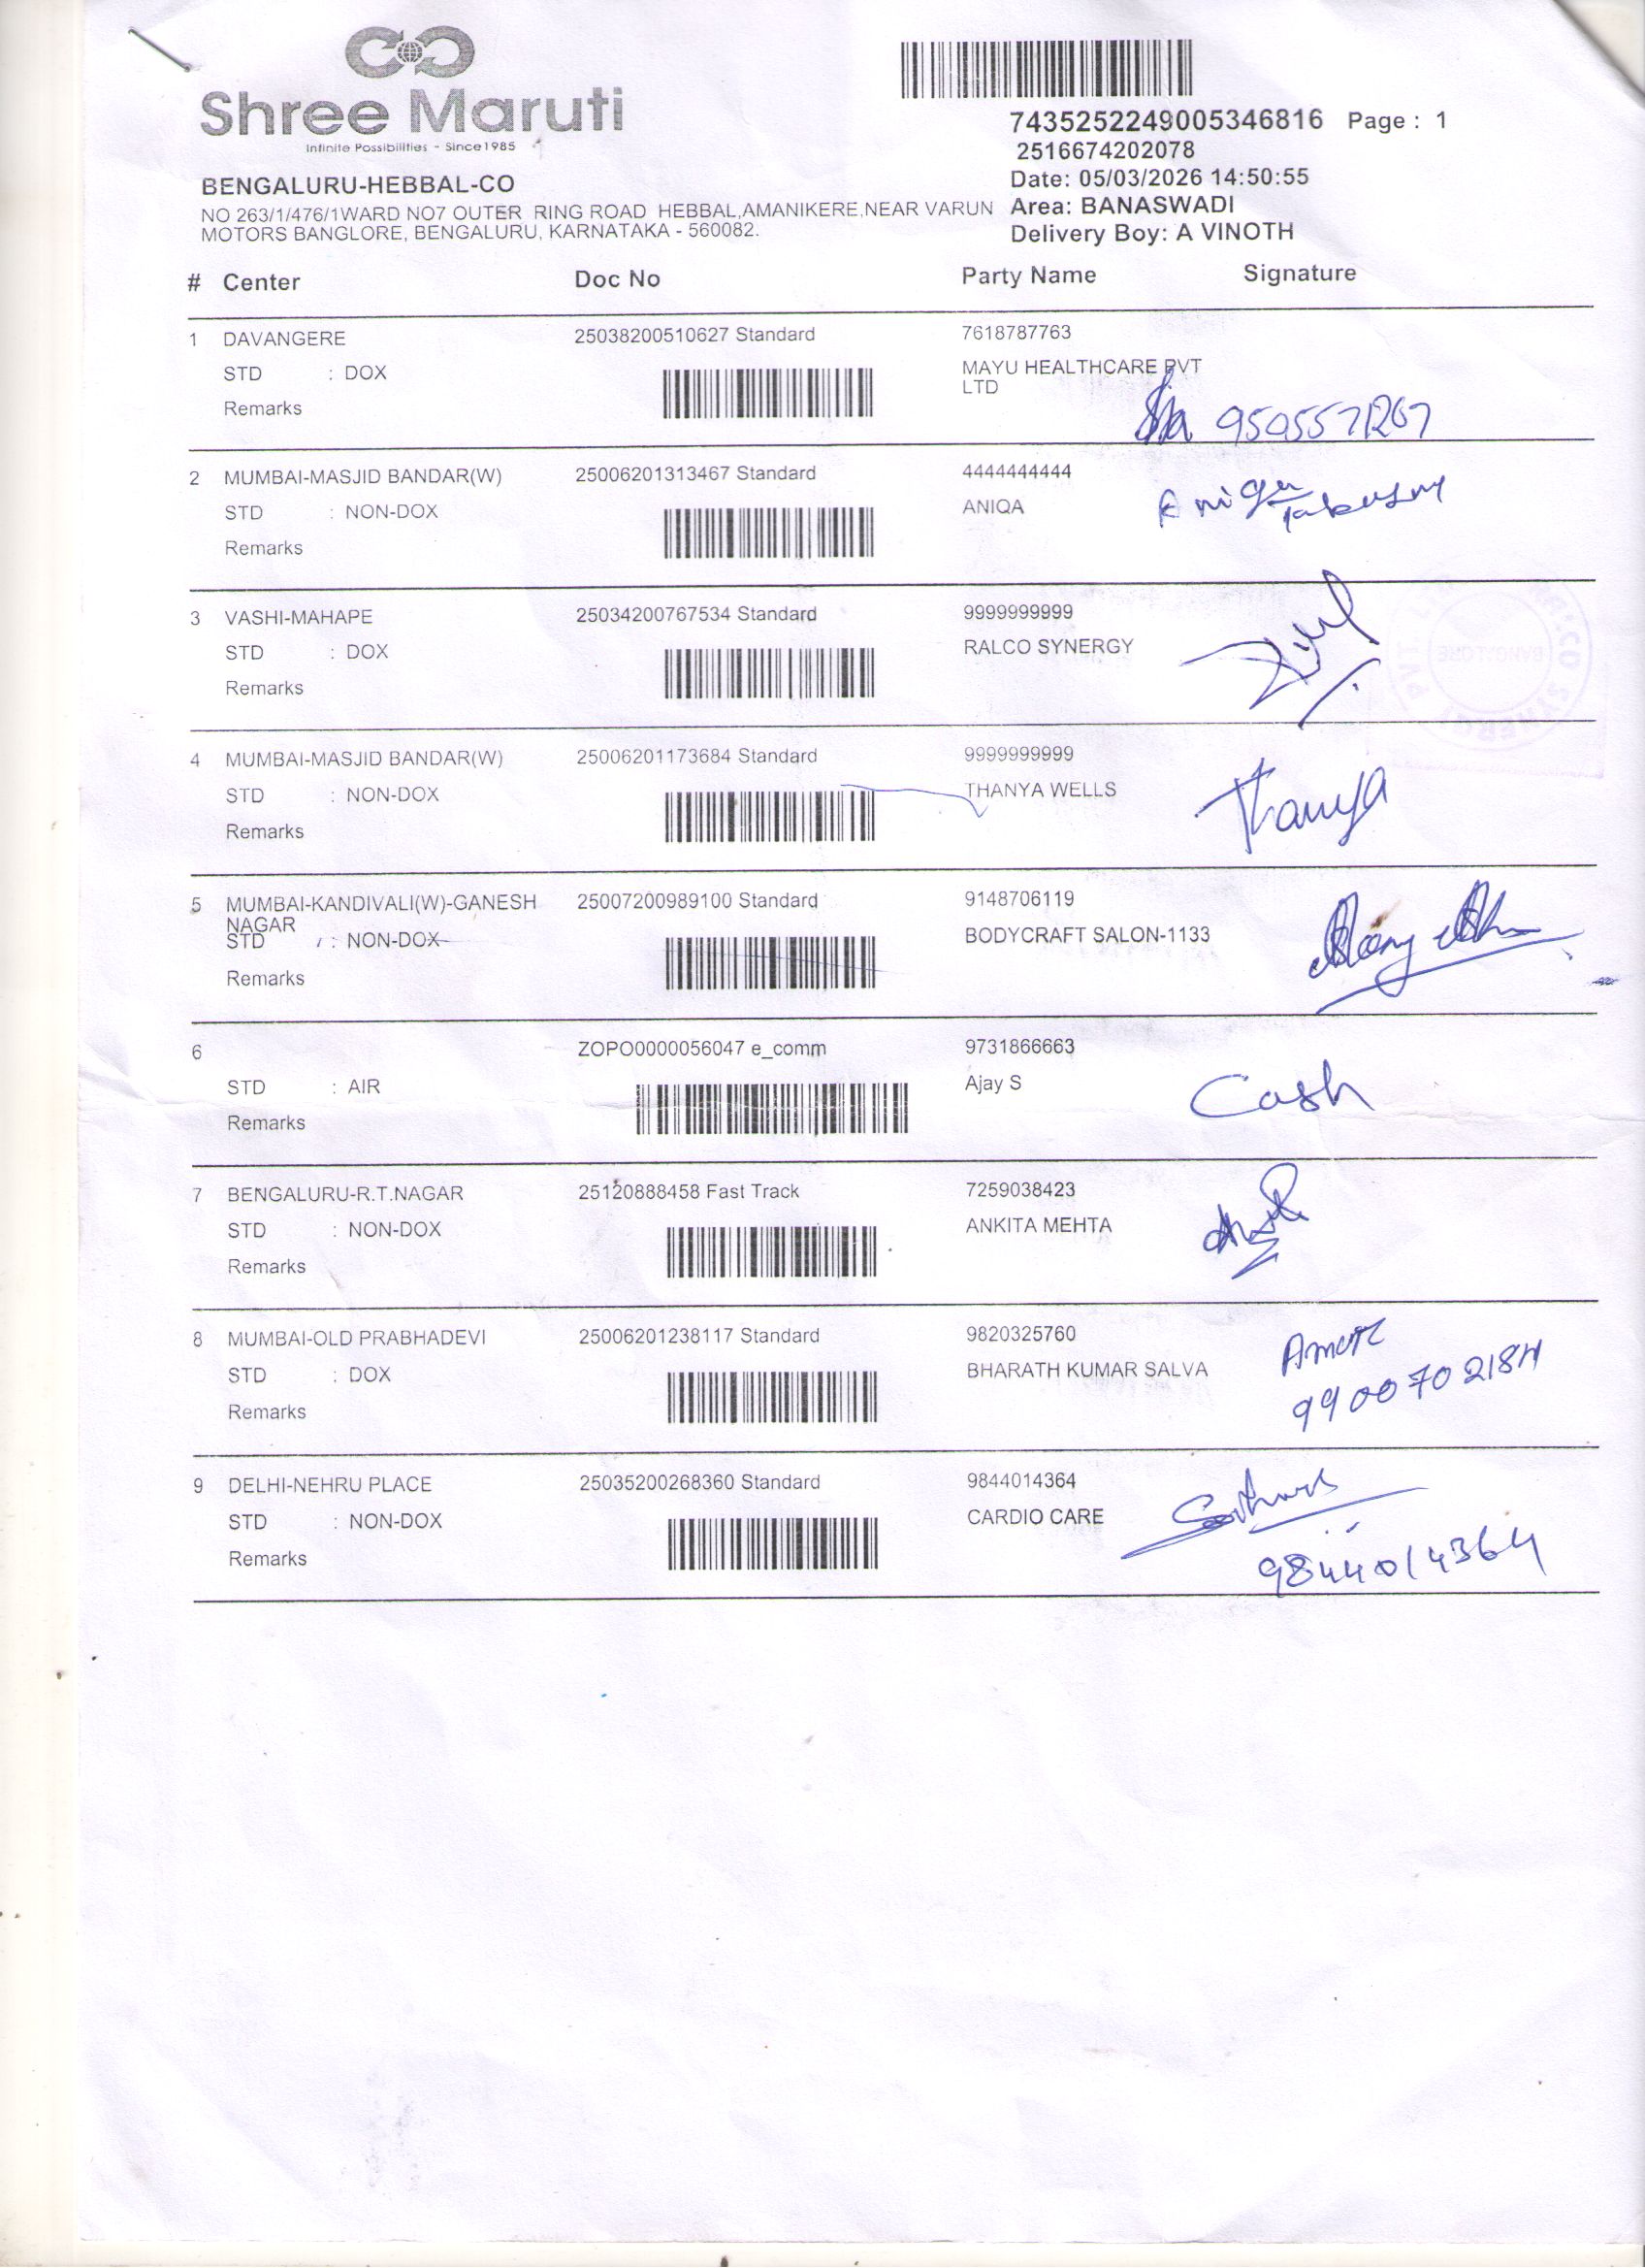 Shree Maruti
Infinite Possibilities - Since1985
7435252249005346816 Page : 1
2516674202078
Date: 05/03/2026 14:50:55
Area: BANASWADI
Delivery Boy: A VINOTH
BENGALURU-HEBBAL-CO
NO 263/1/476/1WARD NO7 OUTER RING ROAD HEBBAL,AMANIKERE,NEAR VARUN
MOTORS BANGLORE, BENGALURU, KARNATAKA - 560082.
# Center Doc No Party Name Signature
1 DAVANGERE 25038200510627 Standard 7618787763
STD : DOX MAYU HEALTHCARE PVT
LTD
Remarks 9505571267
2 MUMBAI-MASJID BANDAR(W) 25006201313467 Standard 4444444444
STD : NON-DOX ANIQA Aniqa
Remarks
3 VASHI-MAHAPE 25034200767534 Standard 9999999999
STD : DOX RALCO SYNERGY
Remarks
4 MUMBAI-MASJID BANDAR(W) 25006201173684 Standard 9999999999
STD : NON-DOX THANYA WELLS Thanya
Remarks
5 MUMBAI-KANDIVALI(W)-GANESH 25007200989100 Standard 9148706119
NAGAR
STD : NON-DOX BODYCRAFT SALON-1133
Remarks
6 ZOPO0000056047 e_comm 9731866663
STD : AIR Ajay S Cash
Remarks
7 BENGALURU-R.T.NAGAR 25120888458 Fast Track 7259038423
STD : NON-DOX ANKITA MEHTA
Remarks
8 MUMBAI-OLD PRABHADEVI 25006201238117 Standard 9820325760
STD : DOX BHARATH KUMAR SALVA
Remarks 9900702184
9 DELHI-NEHRU PLACE 25035200268360 Standard 9844014364
STD : NON-DOX CARDIO CARE
Remarks 9844014364